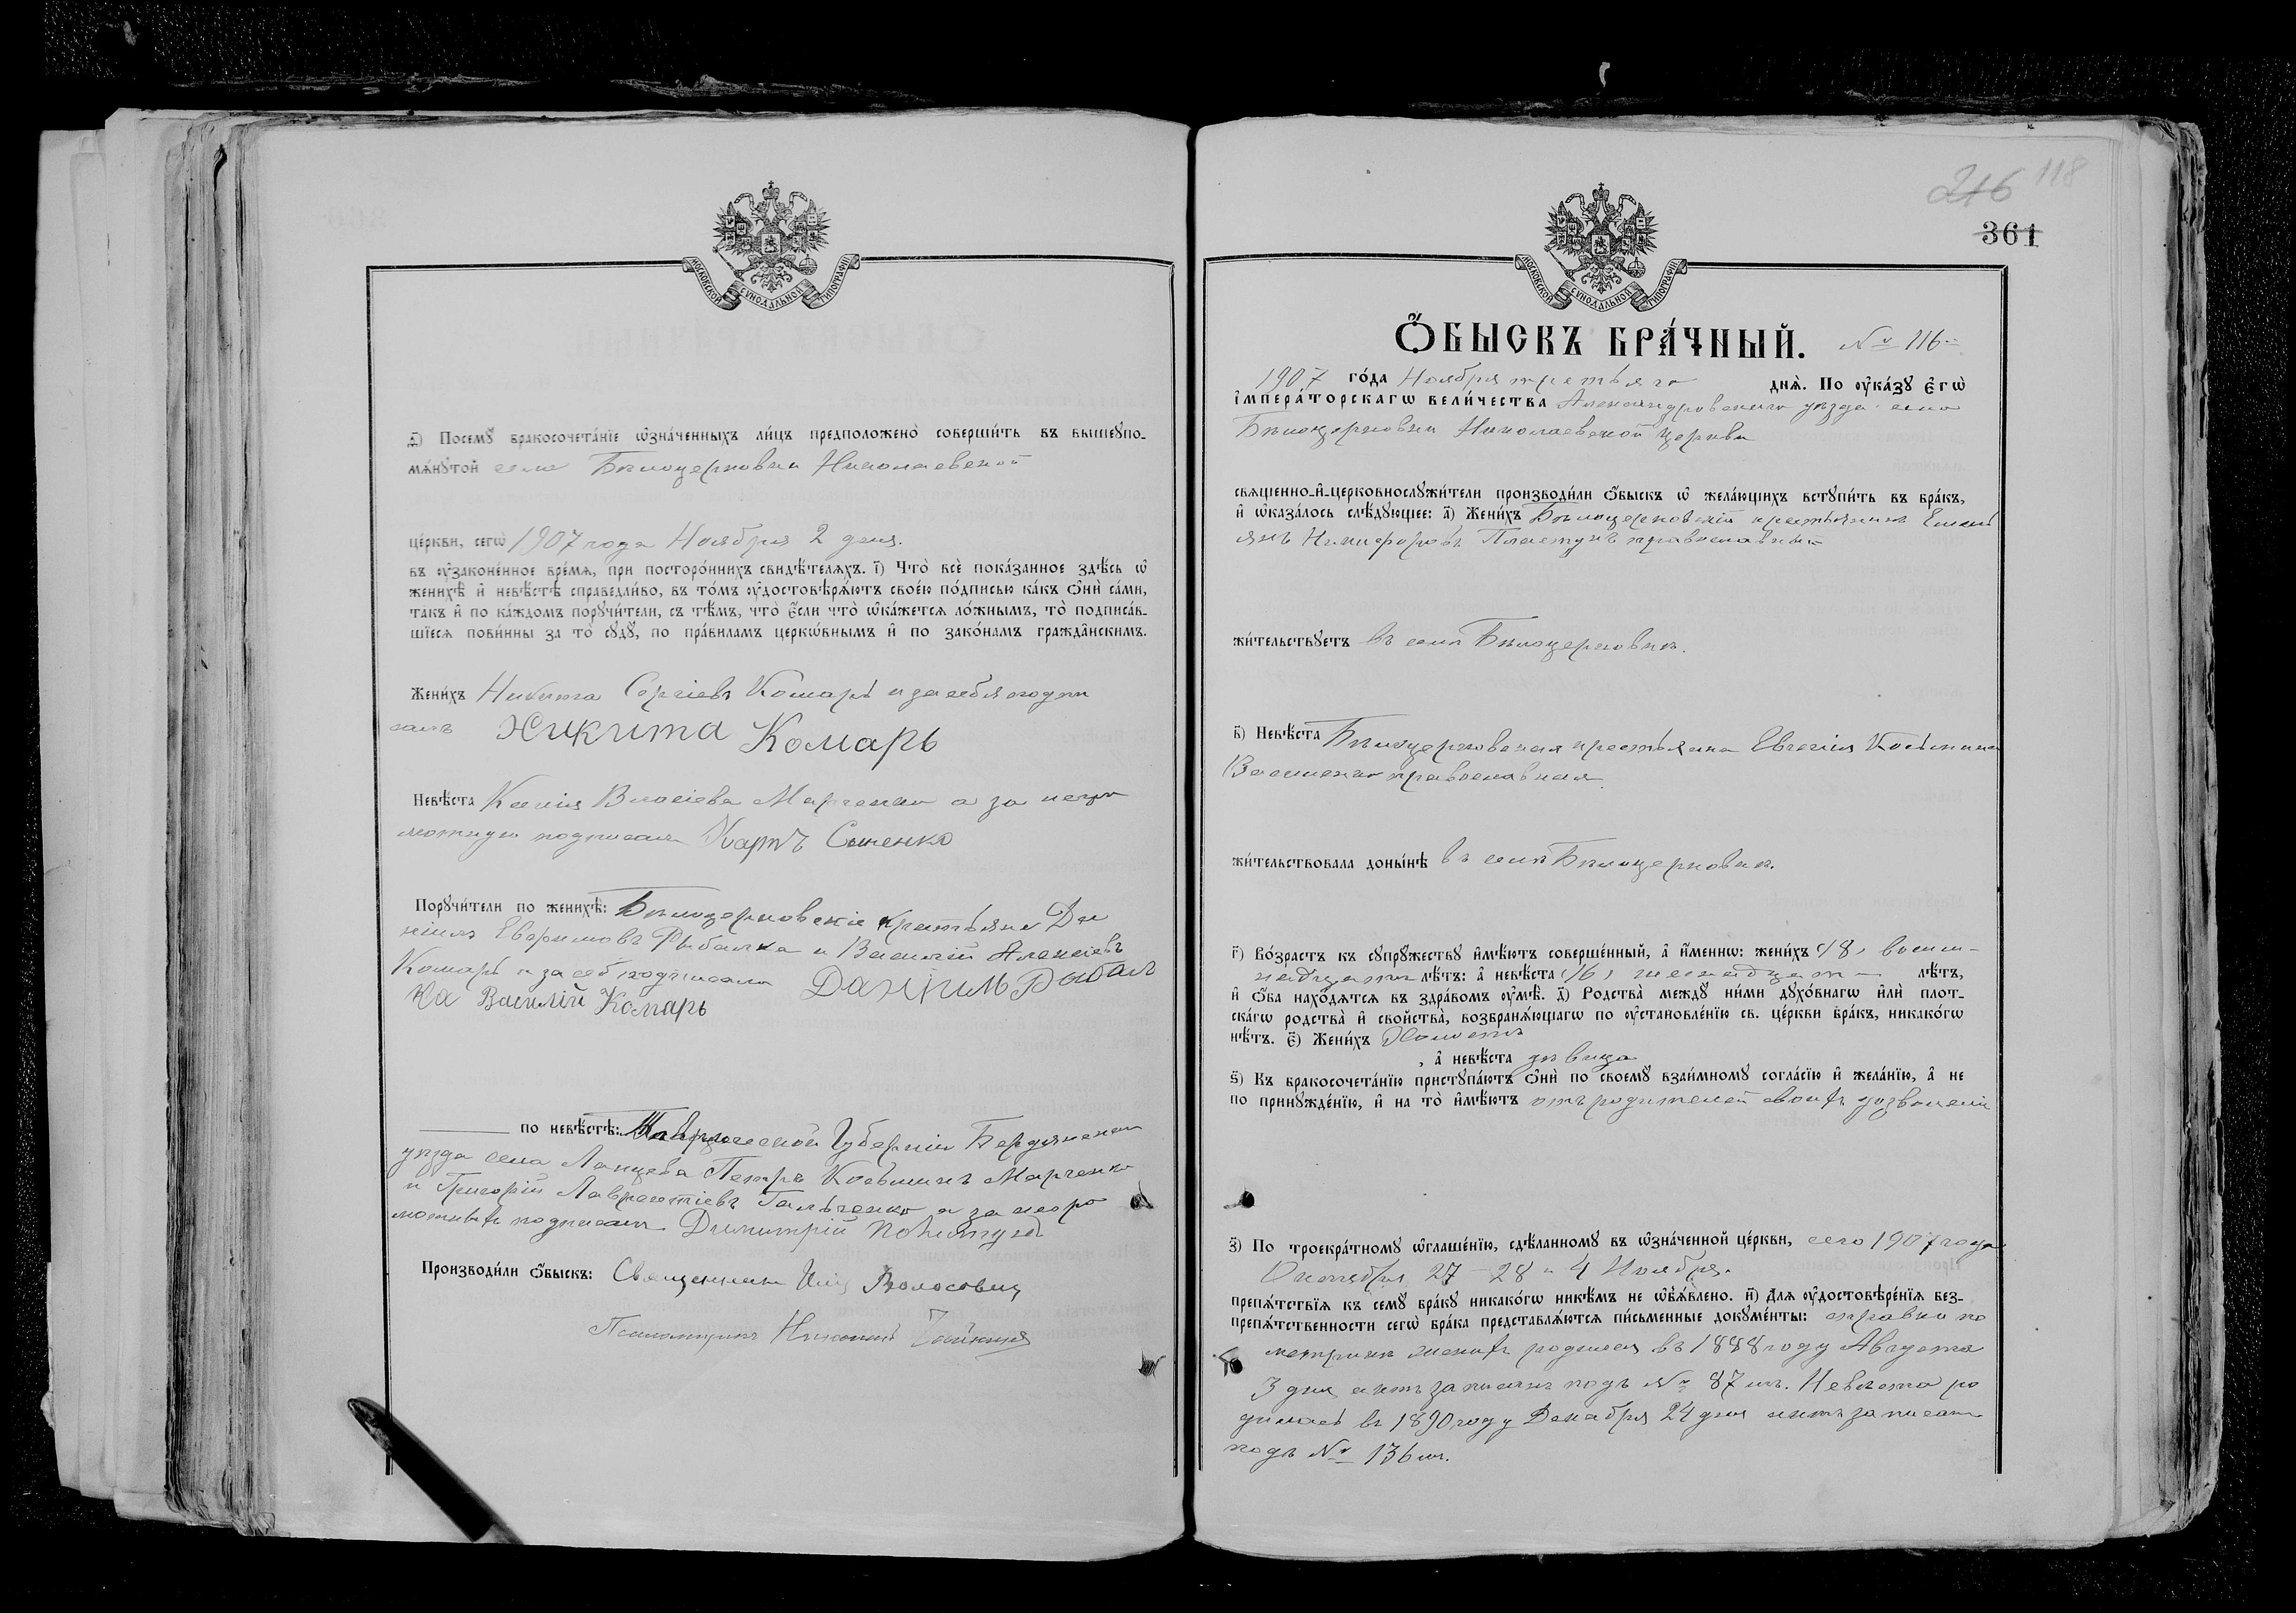 МОСКОВСКОЙ СѴНОДАЛЬНОЙ ТИПОГРАФІИ
д҃) Посемꙋ̀ бракосочета́нїе ѡ҆зна́ченныхъ ли́цъ предположено̀ соверши́ть въ вышеꙋпо-
мѧ́нꙋтой селѣ Бѣлоцерковки Николаевской
це́ркви, сегѡ̀ 1907 года Ноября 2 дня.
въ ᲂу҆зако́ненное вре́мѧ, при посторо́ннихъ свидѣ́телѧхъ. і҃) Что̀ всѐ пока́занное здѣ́сь ѡ҆
женихѣ̀ и҆ невѣ́стѣ справедли́во, въ то́мъ ᲂу҆достовѣрѧ́ютъ свое́ю по́дписью ка́къ ѻ҆нѝ са́ми,
та́къ и҆ по ка́ждомъ порꙋчи́тели, съ тѣ́мъ, что̀ є҆́сли что̀ ѡ҆ка́жетсѧ ло́жнымъ, то̀ подписа́в-
шїесѧ пови́нны за то̀ сꙋдꙋ̀, по пра́виламъ церкѡ́внымъ и҆ по зако́намъ гражда̑нскимъ.
Жени́хъ Никита Сергіевъ Комарь и за себя подпи
салъ Никита Комарь
Невѣ́ста Ксенія Власіева Марченко а за негра
мотную подписалъ Карпъ Сыченко
Порꙋчи́тели по женихѣ̀: Бѣлоцерковскіе крестьяне Да
ніилъ Евфимовъ Рыбалка и Василій Алексіевъ
Комарь и за себя подписали Даніилъ Рыбал
ка Василій Комарь
по невѣ́стѣ: Таврической Губерніи Бердянскаго
уѣзда села Петръ Марченко
и Григорій Лаврентіевъ Гальченко а за негра
мотныхъ подписалъ Димитрій
Производи́ли ѻ҆́быскъ: Священникъ Илія Волосовичъ
Псаломщикъ Николай
216 118
361
МОСКОВСКОЙ СѴНОДАЛЬНОЙ ТИПОГРАФІИ
Ѻ҆́БЫСКЪ БРА́ЧНЫЙ. № 116
1907 го́да Ноября третьяго днѧ̀. По ᲂу҆ка́зꙋ Є҆гѡ̀
і҆мпера́торскагѡ вели́чества Александровскаго уѣзда села
Бѣлоцерковки Николаевской церкви
свѧщенно-и҆-церковнослꙋжи́тели производи́ли ѻ҆́быскъ ѡ҆ жела́ющихъ встꙋпи́ть въ бра́къ,
и҆ ѡ҆каза́лось слѣ́дꙋющее: а҃) Жени́хъ Бѣлоцерковскій крестьянинъ Емель
янъ Никифоровъ Пластунъ православный
жи́тельствꙋетъ въ селѣ Бѣлоцерковкѣ.
в҃) Невѣ́ста Бѣлоцерковская крестьянка Евгенія Косьмина
Василенко православная
жи́тельствовала доны́нѣ въ селѣ Бѣлоцерковкѣ.
г҃) Во́зрастъ къ сꙋпрꙋ́жествꙋ и҆мѣ́ютъ соверше́нный, а҆ и҆́меннѡ: жени́хъ (18) восем-
надцати лѣ́тъ: а҆ невѣ́ста (16) шестнадцати лѣ́тъ,
и҆ ѻ҆́ба нахо́дѧтсѧ въ здра́вомъ ᲂу҆мѣ̀. д҃) Родства̀ междꙋ̀ ни́ми дꙋхо́внагѡ и҆лѝ плот-
ска́гѡ родства̀ и҆ сво́йства, возбранѧ́ющагѡ по ᲂу҆становле́нїю св. це́ркви бра́къ, никако́гѡ
нѣ́тъ. є҃) Жени́хъ Холостъ
, а҆ невѣ́ста дѣвица
ѕ҃) Къ бракосочета́нїю пристꙋпа́ютъ ѻ҆нѝ по своемꙋ̀ взаи́мномꙋ согла́сїю и҆ жела́нїю, а҆ не
по принꙋжде́нїю, и҆ на то̀ и҆мѣ́ютъ отъ родителей своихъ дозволеніе
з҃) По троекра́тномꙋ ѡ҆глаше́нїю, сдѣ́ланномꙋ въ ѡ҆зна́ченной це́ркви, сего 1907 года
Октября 27 28 и 4 Ноября.
препѧ́тствїѧ къ семꙋ̀ бра́кꙋ никако́гѡ никѣ́мъ не ѡ҆б̾ѧ́влено. и҃) Для ᲂу҆достовѣре́нїѧ без-
препѧ́тственности сегѡ̀ бра́ка представлѧ́ютсѧ пи́сьменные докꙋме́нты: справки по
метрикѣ женихъ родился въ 1888 году Августа
3 дня актъ записанъ подъ № 87 мъ. Невѣста ро
дилась въ 1890 году Декабря 24 дня актъ записанъ
подъ № 136 мъ.